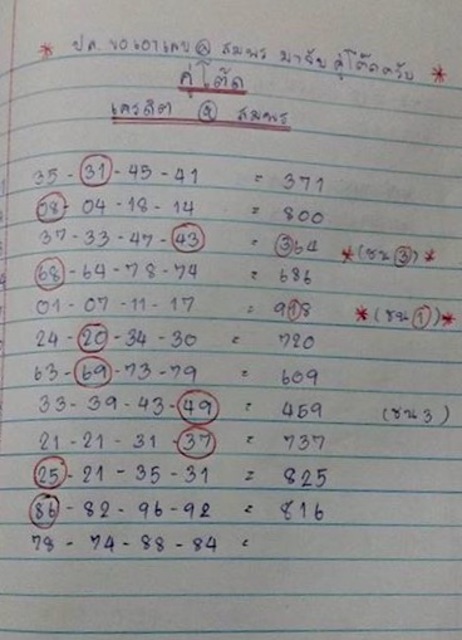 * ปล. ขอเอาเลข @ สมพร มาจับ คู่โต๊ดครับ *
คู่โต๊ด
เครดิต @ สมพร
35 - 31 - 45 - 41 = 371
08 - 04 - 18 - 14 = 800
37 - 33 - 47 - 43 = 364 *(ชน 3)*
68 - 64 - 78 - 74 = 686
01 - 07 - 11 - 17 = 918 *(ชน 1)*
24 - 20 - 34 - 30 = 720
63 - 69 - 73 - 79 = 609
33 - 39 - 43 - 49 = 459 (ชน 3)
21 - 21 - 31 - 37 = 737
25 - 21 - 35 - 31 = 825
86 - 82 - 96 - 92 = 816
78 - 74 - 88 - 84 =